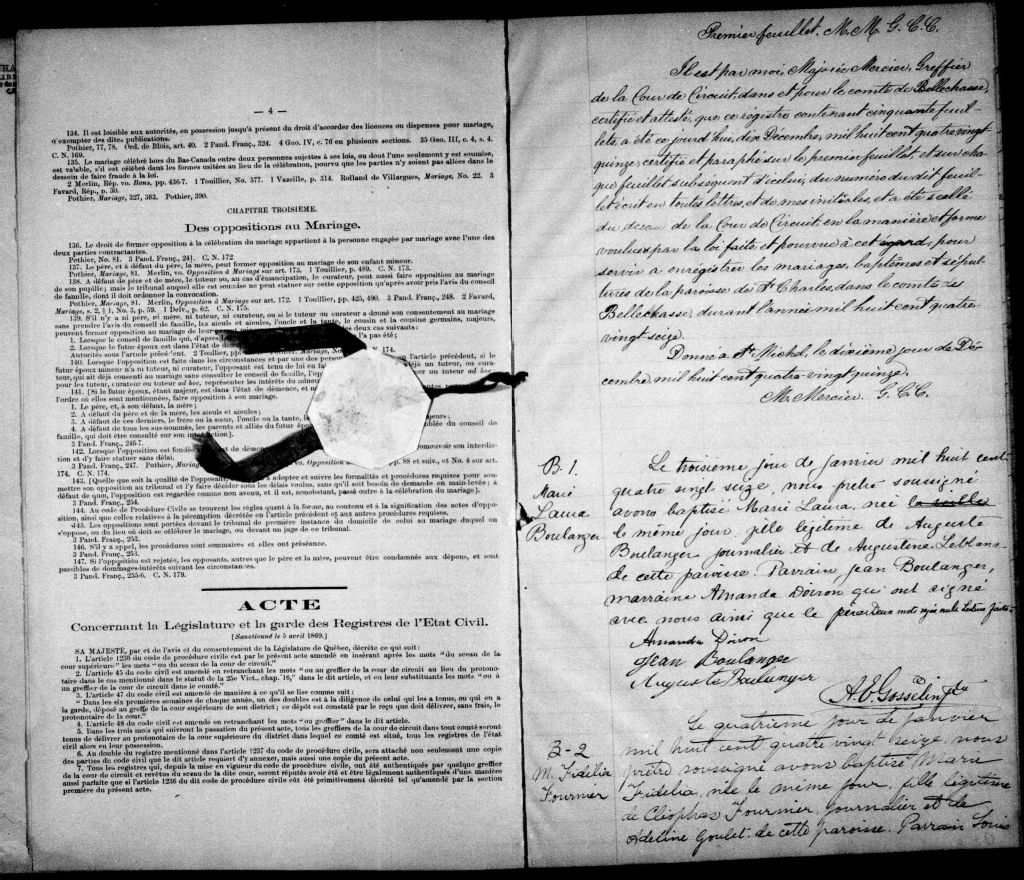 — 4 —
134. Il est loisible aux autorités, en possession jusqu'à présent du droit d'accorder des licences ou dispenses pour mariage,
d'exempter des dites publications.
Pothier, 77, 78. Ord. de Blois, art. 40. 2 Pand. Franç., 324. 4 Geo. IV, c. 76 en plusieurs sections. 35 Geo. III, c. 4, s. 4.
C. N. 169.
135. Le mariage célébré hors du Bas-Canada entre deux personnes sujettes à ses lois, ou dont l'une seulement y est soumise,
est valable, s'il est célébré dans les formes usitées au lieu de la célébration, pourvu que les parties n'y soient pas allées dans le
dessein de faire fraude à la loi.
2 Merlin, Rép. vo. Bans, pp. 436-7. 1 Touillier, No. 577. 1 Vazeille, p. 314. Rolland de Villargues, Mariage, No. 22. 3
Favard, Rép., p. 30.
Pothier, Mariage, 327, 363. Pothier, 390.
CHAPITRE TROISIÈME.
Des oppositions au Mariage.
136. Le droit de former opposition à la célébration du mariage appartient à la personne engagée par mariage avec l'une des
deux parties contractantes.
Pothier, No. 81. 3 Pand. Franç., 241. C. N. 172
137. Le père, et à défaut du père, la mère, peut former opposition au mariage de son enfant mineur.
Pothier, Mariage, 81. Merlin, vo. Opposition à Mariage sur art. 173. 1 Touillier, p. 489. C. N. 173.
138. A défaut de père et de mère, le tuteur ou, au cas d'émancipation, le curateur, peut aussi faire opposition au mariage
de son pupille; mais le tribunal auquel elle est soumise ne peut statuer sur cette opposition qu'après avoir pris l'avis du conseil
de famille, dont il doit ordonner la convocation.
Pothier, Mariage, 81. Merlin, Opposition à Mariage sur art. 172. 1 Touillier, pp. 425, 490. 3 Pand. Franç., 248. 2 Favard,
Mariage, s. 2, § 1, No. 3, p. 59. 1 Delv., p. 62. C. N. 175.
139. S'il n'y a ni père, ni mère, ni tuteur, ni curateur, ou si le tuteur ou curateur a donné son consentement au mariage
sans prendre l'avis du conseil de famille, les aïeuls et aïeules, l'oncle et la tante, le cousin et la cousine germains, majeurs,
peuvent former opposition au mariage de leur deux cas suivants:
1. Lorsque le conseil de famille qui, d'après l'a pas été;
2. Lorsque le futur époux est dans l'état de
Autorités sous l'article précé'ent. 2 Toullier, pp. Mariage, No. 174.
140. Lorsque l'opposition est faite dans les circonstances et par une des l'article précédent, si le
futur époux mineur n'a ni tuteur, ni curateur, l'opposant est tenu de lui en déjà un tuteur, ou cura-
teur, qui ait déjà consenti au mariage sans consulter le conseil de famille, l'op un tuteur ad hoc
pour les tuteur, curateur ou tuteur ad hoc, représenter les intérêts du mineur
141. [Si le futur époux, étant majeur, est dans l'état de démence, et
l'ordre où elles sont mentionnées, faire opposition à son mariage.
1. Le père et, à son défaut, la mère;
2. A défaut du père et de la mère, les aïeuls et aïeules;
3. A défaut de ces derniers, le frère ou la sœur, l'oncle ou la tante, jeurs;
4. A défaut de tous les sus-nommés, les parents et alliés du futur ép mblée du conseil de
famille, qui doit être consulté sur son interdiction].
3 Pand. Franç., 246-7.
142. Lorsque l'opposition est fondé de démen omouvoir son interdic-
tion et d'y faire statuer sans délai.
3 Pand. Franç., 247. Pothier, Mariag vo. Opposition pp. 88 et suiv., et No. 4 sur art.
174. C. N. 174.
143. [Quelle que soit la qualité de l'opposant, adopter et suivre les formalités et procédures requises pour sou-
mettre son opposition au tribunal et l'y faire décider sous les délais voulus, sans qu'il soit besoin de demande en main-levée; à
défaut de quoi, l'opposition est regardée comme non avenu, et il est, nonobstant, passé outre à la célébration du mariage].
3 Pand. Franç., 254.
144. Au code de Procédure Civile se trouvent les règles quant à la forme, au contenu et à la signification des actes d'oppo-
sition, ainsi que celles relatives à la péremption décrétée en l'article précédent et aux autres procédures requises.
145. Les oppositions sont portées devant le tribunal de première instance du domicile de celui au mariage duquel on
s'oppose, ou du lieu où doit se célébrer le mariage, ou devant un juge de ce tribunal.
3 Pand. Franç., 253.
146. S'il y a appel, les procédures sont sommaires et elles ont préséance.
3 Pand. Franç., 253.
147. Si l'opposition est rejetée, les opposants, autres que le père et la mère, peuvent être condamnés aux dépens, et sont
passibles de dommages-intérêts suivant les circonstances.
3 Pand. Franç., 255-6. C. N. 179.
ACTE
Concernant la Législature et la garde des Registres de l'Etat Civil.
[Sanctionné le 5 avril 1869.]
SA MAJESTÉ, par et de l'avis et du consentement de la Législature de Québec, décrète ce qui suit:
1. L'article 1236 du code de procédure civile est par le présent acte amendé en insérant après les mots "du sceau de la
cour supérieure" les mots "ou du sceau de la cour de circuit."
2. L'article 45 du code civil est amendé en retranchant les mots "ou au greffier de la cour de circuit au lieu du protono-
taire dans le cas mentionné dans le statut de la 25e Vict., chap. 16," dans le dit article, et en leur substituants les mots "ou à
un greffier de la cour de circuit dans le comté."
3. L'article 47 du code civil est amendé de manière à ce qu'il se lise comme suit:
"Dans les six premières semaines de chaque année, un des doubles est à la diligence de celui qui les a tenus, ou qui en a
la garde, déposé au greffe de la cour supérieure de son district; ce dépôt est constaté par le reçu que doit délivrer, sans frais, le
protonotaire de la cour."
4. L'article 48 du code civil est amendé en retranchant les mots "ou greffier" dans le dit article.
5. Dans les trois mois qui suivront la passation du présent acte, tous les greffiers de la cour de circuit dans tout comté seront
tenus de délivrer au protonotaire de la cour supérieure du district dans lequel ce comté est situé, tous les registres de l'état
civil alors en leur possession.
6. Au double du registre mentionné dans l'article 1237 du code de procédure civile, sera attaché non seulement une copie
des parties du code civil que le dit article requiert d'y annexer, mais aussi une copie du présent acte.
7. Tous les registres qui, depuis la mise en vigueur du code de procédure civile, ont été authentiqués par quelque greffier
de la cour de circuit et revêtus du sceau de la dite cour, seront réputés avoir été et être légalement authentiqués d'une manière
aussi parfaite que si l'article 1236 du dit code de procédure civile eût été primitivement décrété tel qu'amendé par la section
première du présent acte.
Premier feuillet. M. M. G. C. C.
Il est par moi, Majoric Mercier, Greffier
de la Cour de Circuit, dans et pour le comté de Bellechasse,
certifié et attesté, que ce registre contenant cinquante feuil-
lets, a été ce jourd'hui, dix Décembre, mil huit cent quatre vingt-
quinze, certifié et paraphé sur le premier feuillet, et sur cha-
que feuillet subséquent d'icelui, du numéro du dit feuil-
let écrit en toutes lettres, et de mes initiales, et a été scellé
du sceau de la Cour de Circuit, en la manière et forme
voulues par la loi faite et pourvue à cet égard, pour
servir à enrégistrer les mariages, baptêmes et sépul-
tures de la paroisse de St Charles, dans le comté de
Bellechasse, durant l'année mil huit cent quatre
vingt-seize.
Donné à St Michel, le dixième jour de Dé-
cembre, mil huit cent quatre-vingt quinze.
M. Mercier. G. C. C.
B 1.
Marie
Laura
Boulanger
Le troisième jour de Janvier mil huit cent
quatre vingt seize, nous prêtre soussigné
avons baptisé Marie Laura, née la veille
le même jour fille légitime de Auguste
Boulanger journalier et de Augustine Leblanc
de cette paroisse. Parrain Jean Boulanger,
marraine Amanda Doiron qui ont signé
avec nous ainsi que le père. Deux mots rayés nuls. Lecture faite.
Amanda Doiron
Jean Boulanger
Auguste Boulanger
A. E. Gosselin Ptre
B-2
M. Fidélia
Fournier
Le quatrième jour de Janvier
mil huit cent quatre vingt seize nous
prêtre soussigné avons baptisé Marie
Fidélia, née le même jour, fille légitime
de Cléophas Fournier journalier et de
Adeline Goulet de cette paroisse. Parrain Louis